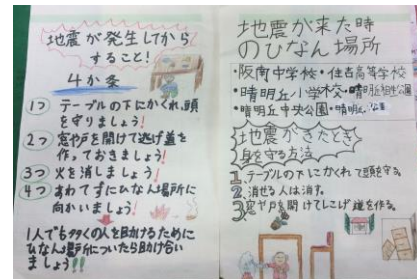 地震が発生してから
すること!
4か条
1つ テーブルの下にかくれ、頭
を守りましょう!
2つ 窓や戸を開けて逃げ道を
作っておきましょう!
3つ 火を消しましょう!
4つ あわてずにひなん場所に
向かいましょう!
1人でも多くの人を助けるために
ひなん場所についたら助け合い
ましょう!!
地震が来た時
のひなん場所
・阪南中学校・住吉高等学校
・晴明丘小学校
・晴明丘中央公園
地震がきたとき
身を守る方法
1.テーブルの下にかくれて頭を守る。
2.消せる人は消す。
3.窓や戸を開けてにげ道を作る。